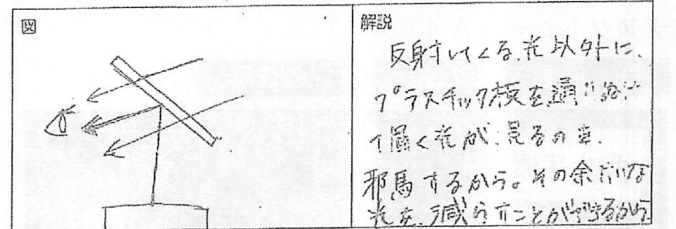 図
解説
反射してくる光以外に、
プラスチック板を通り抜け
て届く光が、見るのを
邪馬するから。その余計な
光を、減らすことができるから